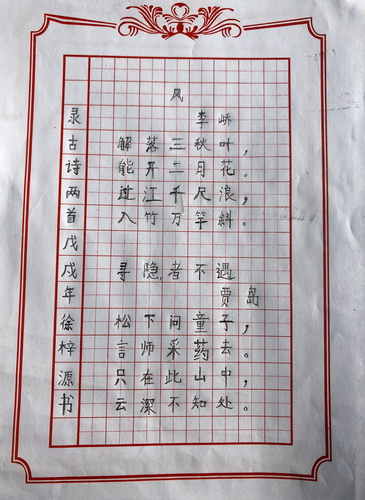 风
李峤
解落三秋叶，
能开二月花。
过江千尺浪，
入竹万竿斜。
寻隐者不遇
贾岛
松下问童子，
言师采药去。
只在此山中，
云深不知处。
录古诗两首戊戌年徐梓源书